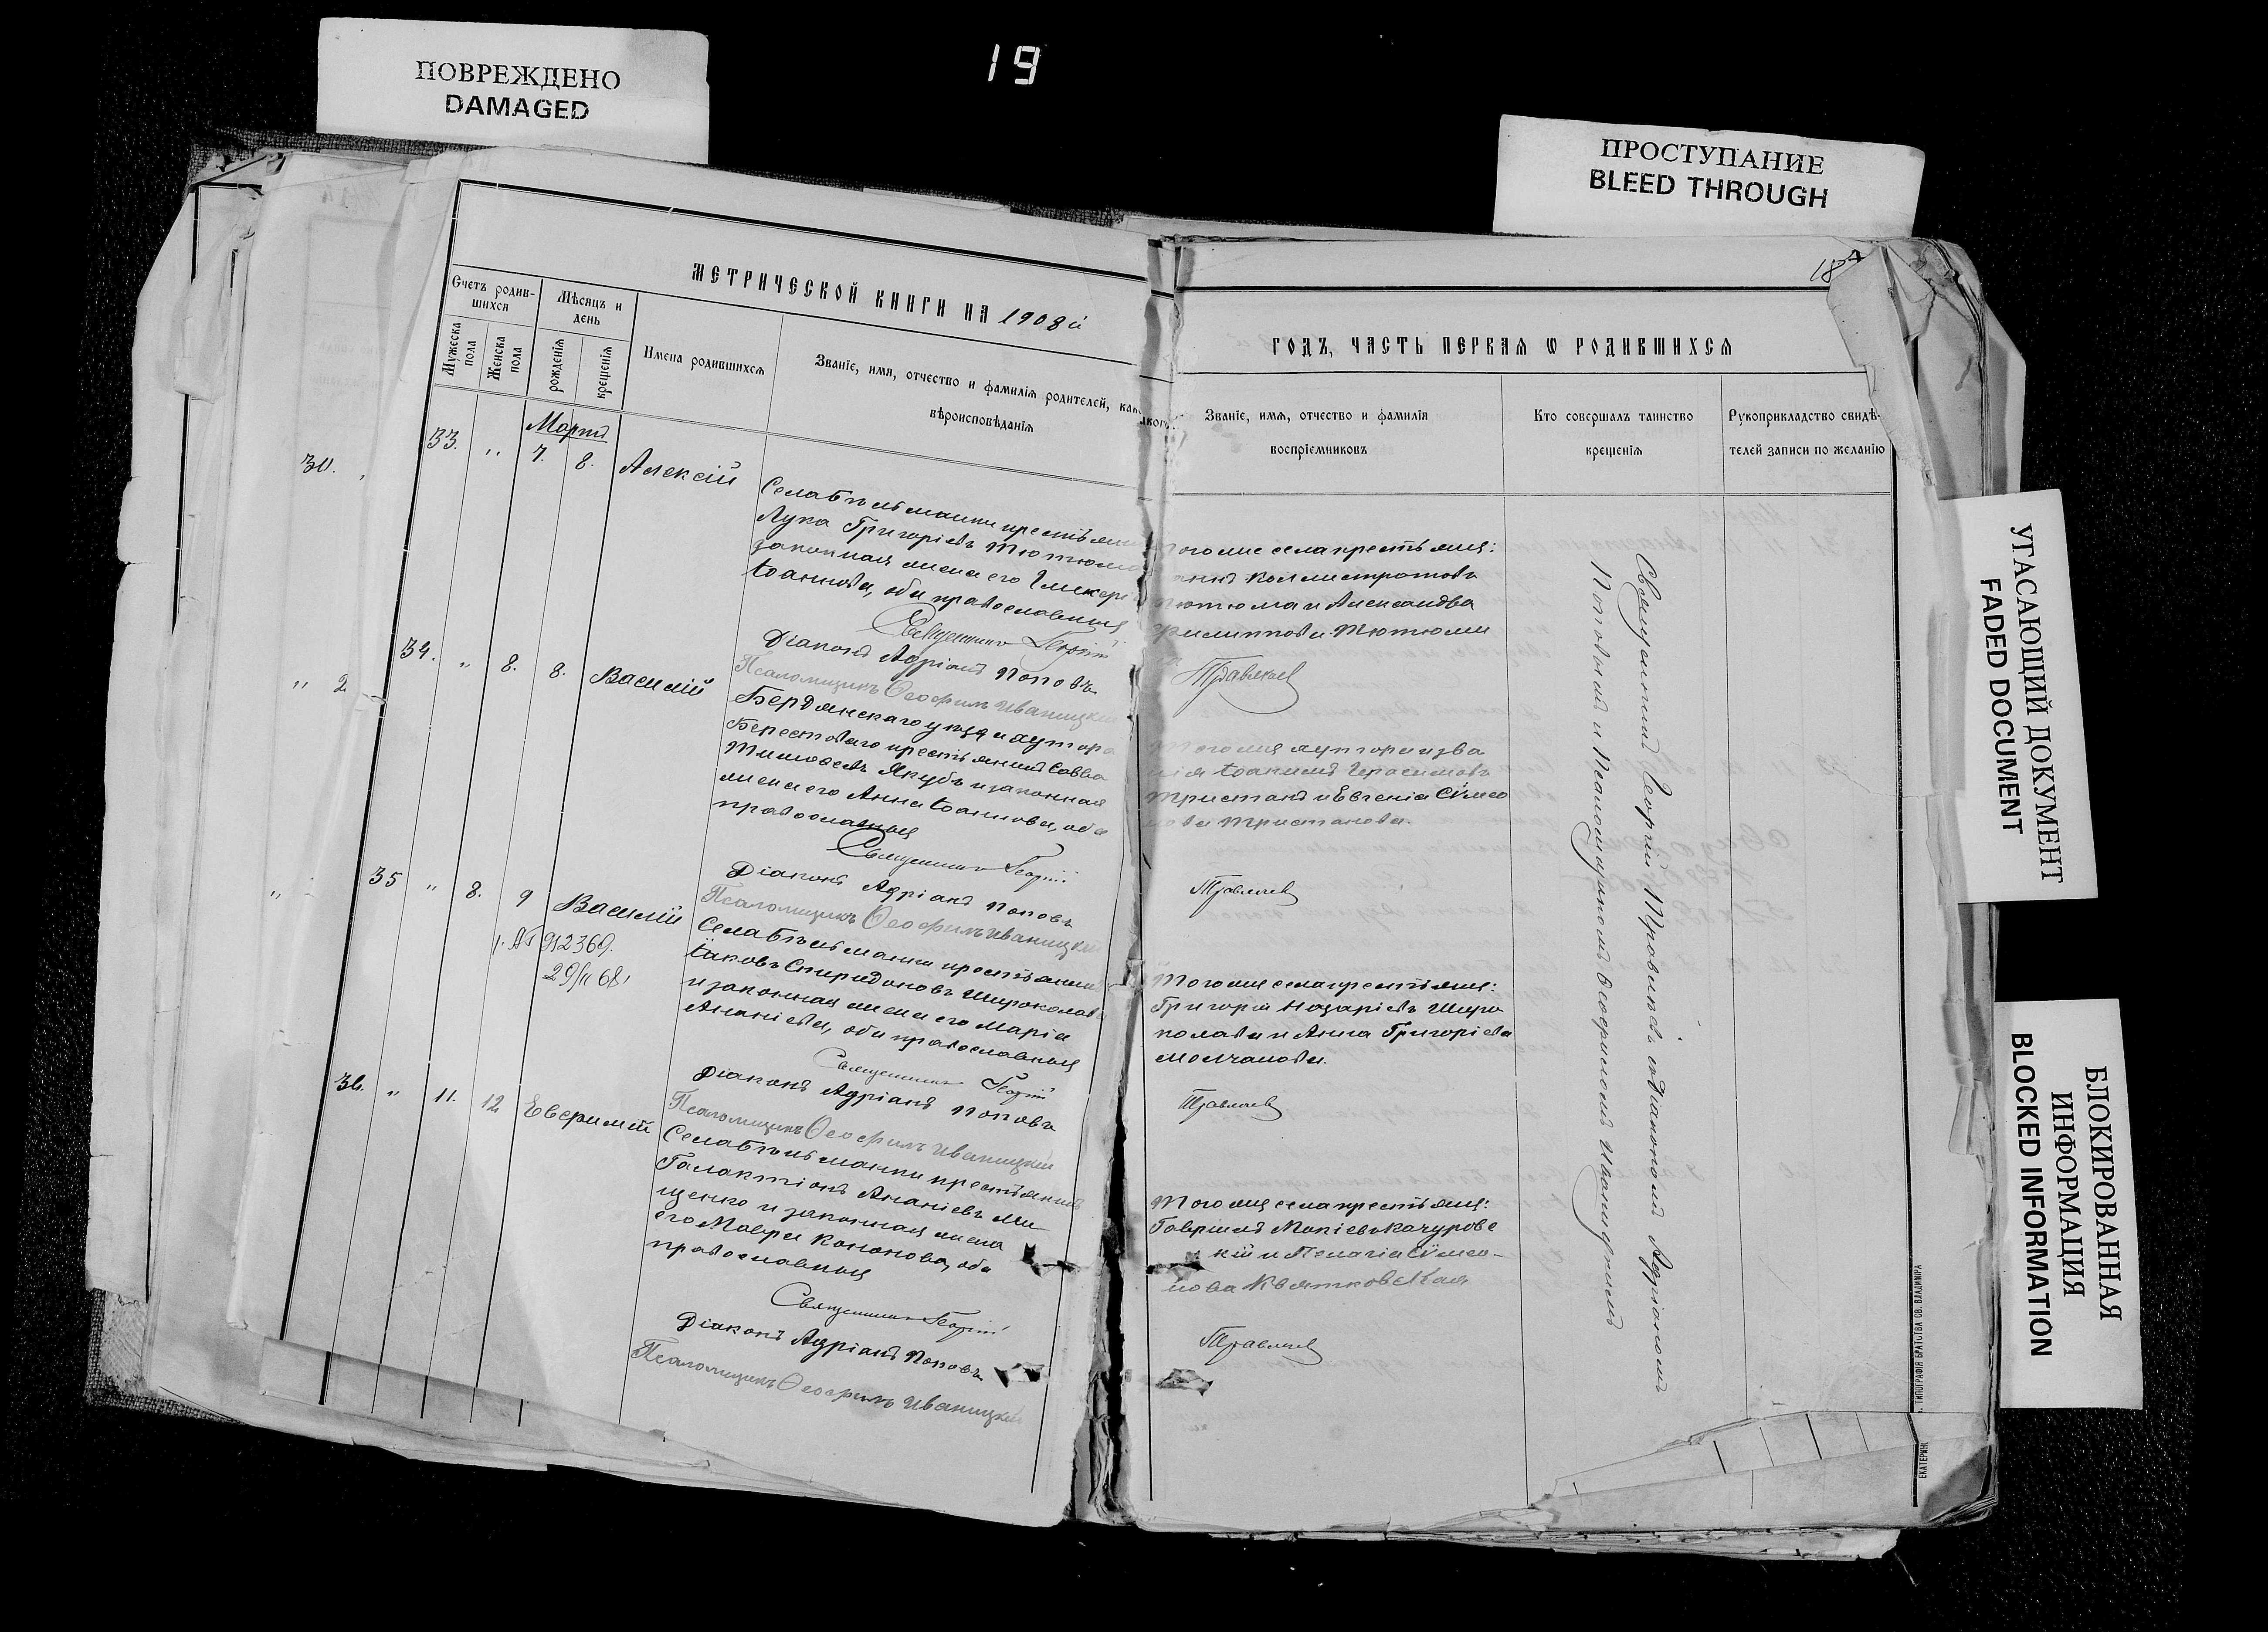 ПОВРЕЖДЕНО
DAMAGED
19
ПРОСТУПАНИЕ
BLEED THROUGH
УГАСАЮЩИЙ ДОКУМЕНТ
FADED DOCUMENT
БЛОКИРОВАННАЯ
ИНФОРМАЦИЯ
BLOCKED INFORMATION
МЕТРИЧЕСКОЙ КНИГИ НА 1908й
Счетъ родив-
шихся
Мѣсяцъ и
день
Мужеска
пола
Женска
пола
рожденія
крещенія
Имена родившихся
Званіе, имя, отчество и фамилія родителей,
вѣроисповѣданія
30.
33. " Мартъ 7. 8. Алексій
крестьянинъ
Лука Григорьевъ
законная жена его
Іоаннова, оба православныя
Священникъ Георгій
Діаконъ Адріанъ Поповъ
Псаломщикъ Ѳеофилъ Иваницкій
" 2
34. " 8. 8. Василій
Бердянскаго уѣзда хутора
Берестоваго крестьянинъ Савва
Тимоѳеевъ Якубъ и законная
жена его Анна Іоаннова, оба
православныя
Священникъ Георгій
Діаконъ Адріанъ Поповъ
Псаломщикъ Ѳеофилъ Иваницкій
35 " 8. 9 Василій
912369.
29/II 68.
Села Бѣльманки крестьянинъ
Іаковъ Спиридоновъ Широколава
и законная жена его Марія
Ананіева, оба православныя
Священникъ Георгій
Діаконъ Адріанъ Поповъ
Псаломщикъ Ѳеофилъ Иваницкій
36. " 11. 12 Евфимій
Села Бѣльманки крестьянинъ
Галактіонъ Ананіевъ Ми-
щенко и законная жена
его Мавра Кононова, оба
православныя
Священникъ Георгій
Діаконъ Адріанъ Поповъ
Псаломщикъ Ѳеофилъ Иваницкій
18
ГОДЪ, ЧАСТЬ ПЕРВАЯ Ѡ РОДИВШИХСЯ
Званіе, имя, отчество и фамилія
воспріемниковъ
Кто совершалъ таинство
крещенія
Рукоприкладство свидѣ-
телей записи по желанію
того же села крестьяне:
Каллистратовъ
Тютюма и Александра
Филиппова Тютюма
Правлевъ
Того же хутора
Іоакимъ Герасимовъ
Тристанъ и Евгенія Сѵмео
нова Тристанова.
Того же села крестьяне:
Григорій Назаріевъ Широ
колава и Анна Григоріева
Молчанова.
Того же села крестьяне:
Гавріилъ Мокіевъ Качуровс
кій и Пелагія Сѵмео-
нова Квятковская
Священникъ Георгій съ Діакономъ Адріаномъ
Поповымъ и Псаломщикомъ Ѳеофиломъ Иваницкимъ
ТИПОГРАФІЯ БРАТСТВА СВ. ВЛАДИМІРА